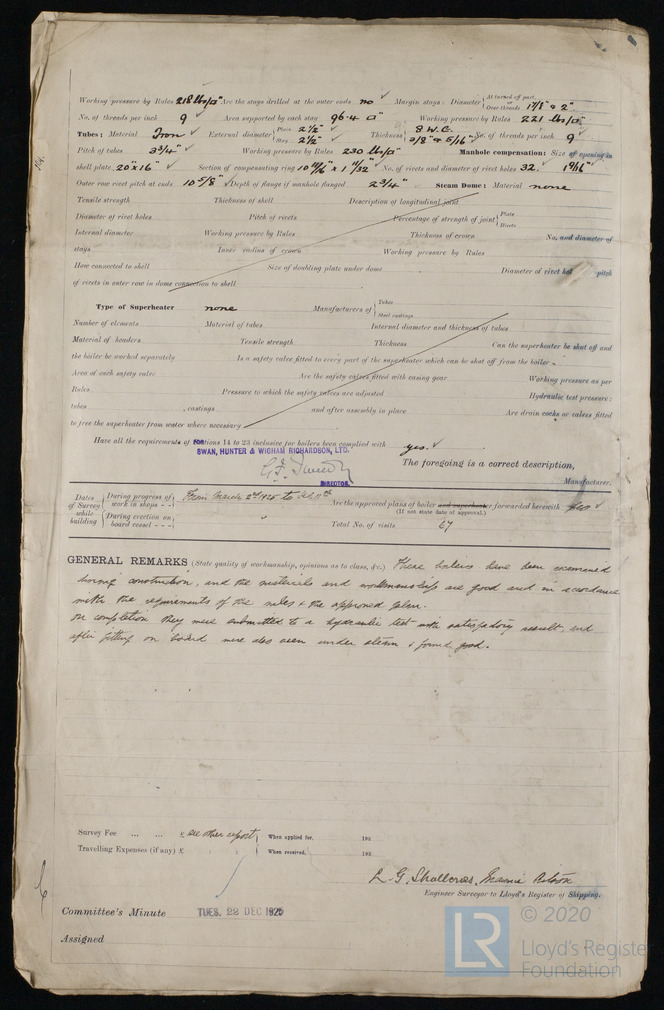 Working pressure by Rules 218 lbs/□" Are the stays drilled at the outer ends no Margin stays: Diameter { At turned off part, or Over threads 1 7/8" & 2"
No. of threads per inch 9 Area supported by each stay 96.4 □" Working pressure by Rules 221 lbs/□"
Tubes: Material Iron External diameter { Plain 2 1/2" Stay 2 1/2" Thickness { 8 W.G. 3/8" & 5/16" No. of threads per inch 9
Pitch of tubes 3 3/4" Working pressure by Rules 230 lbs/□" Manhole compensation: Size of opening in
shell plate 20" x 16" Section of compensating ring No. of rivets and diameter of rivet holes 32.
Outer row rivet pitch at ends 10 5/8" Depth of flange if manhole flanged 2 3/4" Steam Dome: Material none
Tensile strength Thickness of shell Description of longitudinal joint
Diameter of rivet holes Pitch of rivets Percentage of strength of joint { Plate Rivets
Internal diameter Working pressure by Rules Thickness of crown No. and diameter of
stays Inner radius of crown Working pressure by Rules
How connected to shell Size of doubling plate under dome Diameter of rivet pitch
of rivets in outer row in dome connection to shell
Type of Superheater none Manufacturers of { Tubes Steel castings
Number of elements Material of tubes Internal diameter and thickness of tubes
Material of headers Tensile strength Thickness Can the superheater be shut off and
the boiler be worked separately Is a safety valve fitted to every part of the superheater which can be shut off from the boiler
Area of each safety valve Are the safety valves fitted with easing gear Working pressure as per
Rules Pressure to which the safety valves are adjusted Hydraulic test pressure:
tubes , castings and after assembly in place Are drain cocks or valves fitted
to free the superheater from water where necessary
Have all the requirements of Sections 14 to 23 inclusive for boilers been complied with yes.
FOR
SWAN, HUNTER & WIGHAM RICHARDSON, LTD.
The foregoing is a correct description,
DIRECTOR. Manufacturer.
Dates of Survey while building { During progress of work in shops - - From March 2nd 1925 to
Are the approved plans of boiler and superheater forwarded herewith yes
(If not state date of approval.)
{ During erection on board vessel - - - Total No. of visits 67
GENERAL REMARKS (State quality of workmanship, opinions as to class, &c.) These boilers have been examined
during construction, and the materials and workmanship are good and in accordance
with the requirements of the rules & the approved plan.
On completion they were submitted to a hydraulic test with satisfactory result, and
after fitting on board were also seen under steam & found good.
Survey Fee ... ... £ see other report When applied for, 192
Travelling Expenses (if any) £ When received, 192
L. G. Shallcross,
Engineer Surveyor to Lloyd's Register of Shipping.
Committee's Minute TUES. 22 DEC 1925
Assigned
LR © 2020
Lloyd's Register
Foundation